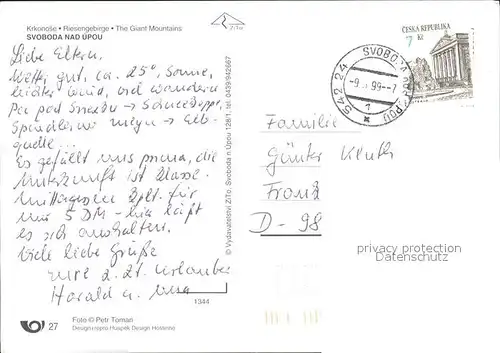 Krkonoše • Riesengebirge • The Giant Mountains
SVOBODA NAD ÚPOU
Z/To
Liebe Eltern,
Wetter gut, ca. 25°, Sonne,
leichter Wind, viel wandern
Pec pod Sněžkou → Schneekoppe,
Spindler → Elb-
quelle...
Es gefällt uns prima, die
Unterkunft ist klasse.
Mittagessen für
nur 5 DM – hier läßt
es sich aushalten.
Viele liebe Grüße
eure z. Zt. Urlauber
Harald u.
© Vydavatelství Z/To, Svoboda n Úpou 128/1, tel. 0439/942667
1344
27
Foto © Petr Toman
ČESKÁ REPUBLIKA
7 Kč
SVOBODA NAD ÚPOU
542 24
-9. 99--7
1
Familie
Günter
D - 98
privacy protection
Datenschutz